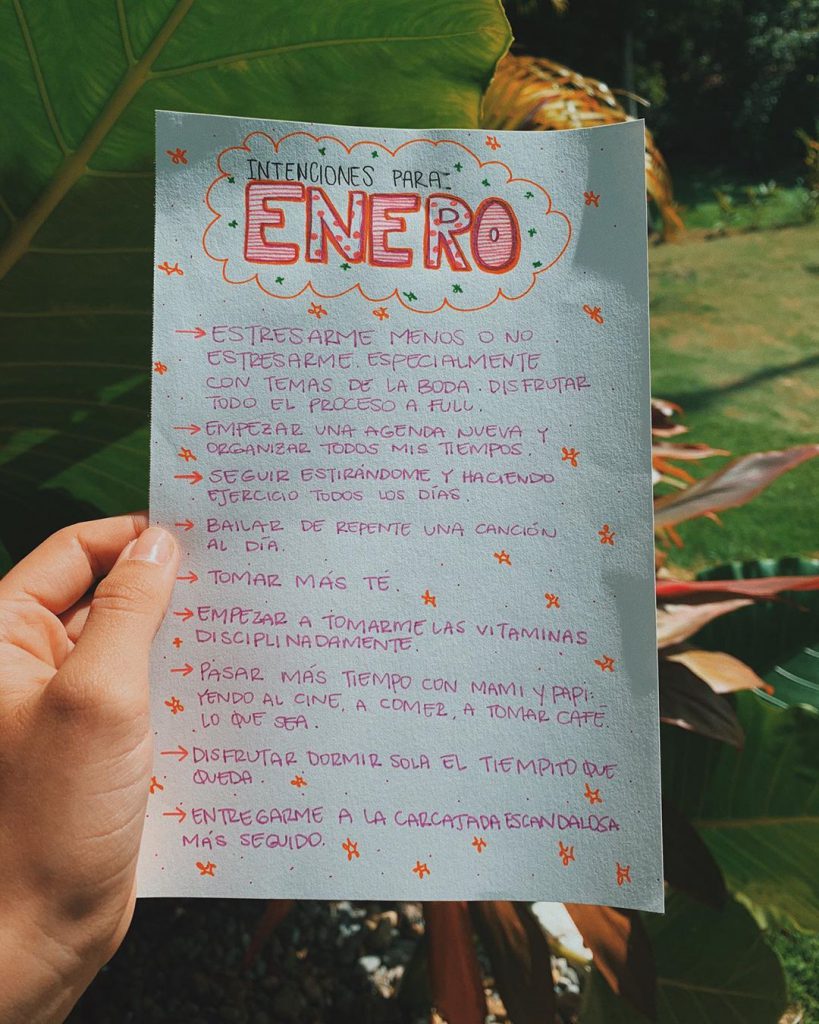 INTENCIONES PARA:
ENERO
→ ESTRESARME MENOS O NO
ESTRESARME. ESPECIALMENTE
CON TEMAS DE LA BODA. DISFRUTAR
TODO EL PROCESO A FULL.
→ EMPEZAR UNA AGENDA NUEVA Y
ORGANIZAR TODOS MIS TIEMPOS.
→ SEGUIR ESTIRÁNDOME Y HACIENDO
EJERCICIO TODOS LOS DÍAS.
→ BAILAR DE REPENTE UNA CANCIÓN
AL DÍA.
→ TOMAR MÁS TÉ.
→ EMPEZAR A TOMARME LAS VITAMINAS
DISCIPLINADAMENTE.
→ PASAR MÁS TIEMPO CON MAMI Y PAPI:
YENDO AL CINE, A COMER, A TOMAR CAFÉ.
LO QUE SEA.
→ DISFRUTAR DORMIR SOLA EL TIEMPITO QUE
QUEDA.
→ ENTREGARME A LA CARCAJADA ESCANDALOSA
MÁS SEGUIDO.